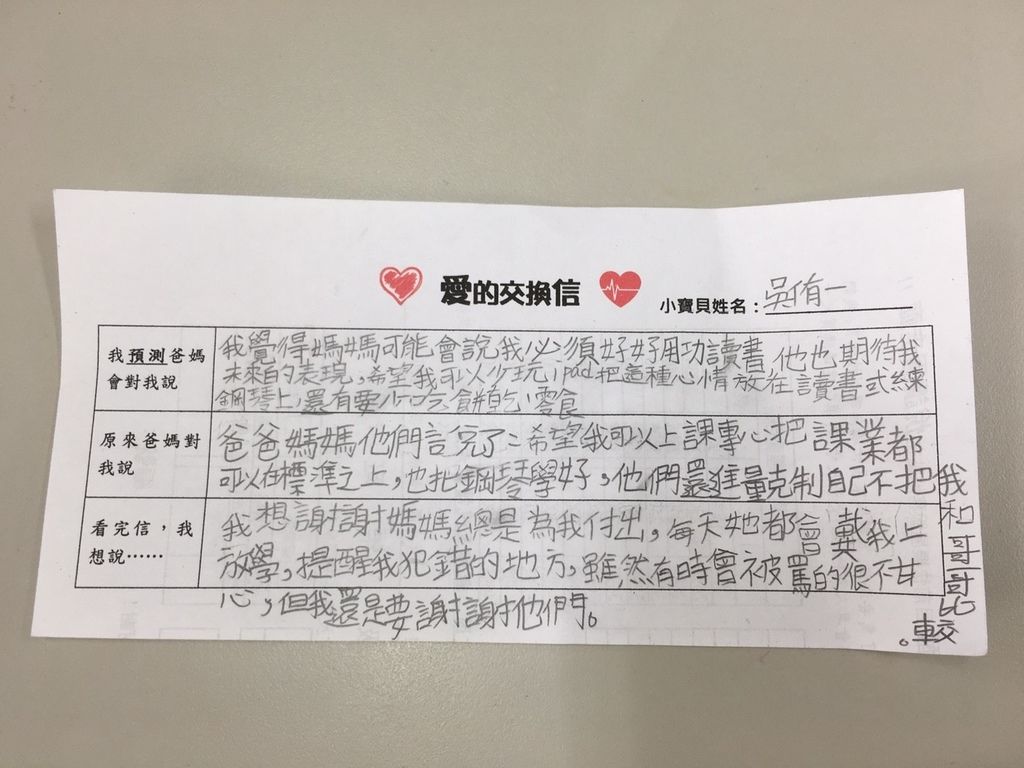 愛的交換信
小寶貝姓名：吳侑一
我預測爸媽
會對我說
我覺得媽媽可能會說我必須好好用功讀書他也期待我
未來的表現，希望我可以少玩ipad把這種心情放在讀書或練
鋼琴上，還有要少吃餅乾、零食
原來爸媽對
我說
爸爸媽媽他們說完了：希望我可以上課專心把課業都
可以在標準之上，也把鋼琴學好，他們還進量克制自己不把我
和哥哥比
較。
看完信，我
想說……
我想謝謝媽媽總是為我付出，每天她都會載我上
放學，提醒我犯錯的地方，雖然有時會被罵的很不甘
心，但我還是要謝謝他們。